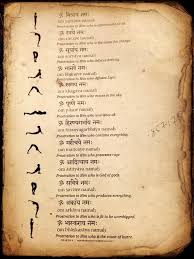 ॐ मित्राय नमः
om mitraya namah
Prostration to Him who is affectionate to all.
ॐ रवये नमः
om ravaye namah
Prostration to Him who is the cause for change.
ॐ सूर्याय नमः
om suryaya namah
Prostration to Him who induces activity.
ॐ भानवे नमः
om bhanave namah
Prostration to Him who diffuses Light.
ॐ खगाय नमः
om khagaya namah
Prostration to Him who moves in the sky.
ॐ पूष्णे नमः
om pushne namah
Prostration to Him who nourishes all.
ॐ हिरण्यगर्भाय नमः
om hiranyagarbhaya namah
Prostration to Him who contains everything.
ॐ मरीचये नमः
om maricaye namah
Prostration to Him who possesses rays.
ॐ आदित्याय नमः
om adityaya namah
Prostration to Him who
ॐ सवित्रे नमः
om savitre namah
Prostration to Him who produces everything.
ॐ अर्काय नमः
om arkaya namah
Prostration to Him who is fit to be worshipped.
ॐ भास्कराय नमः
om bhaskaraya namah
Prostration to Him who is the cause of lustre.